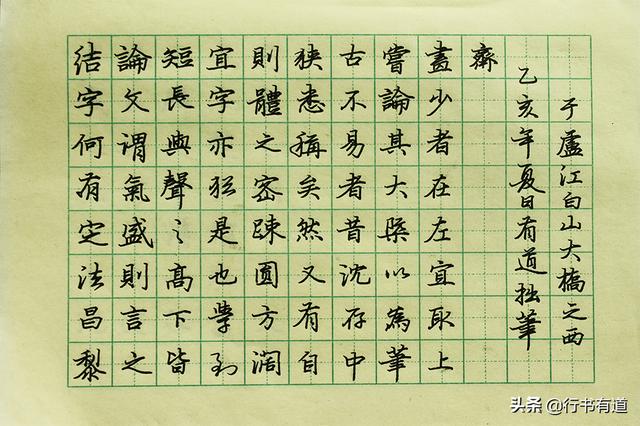 结字何有定法昌黎
論文謂氣盛則言之
短長與聲之高下皆
宜字亦猶是也學到
則體之密踈圓方濶
狹悉稱矣然又有自
古不易者昔沈存中
嘗論其大槩以為筆
畫少者在左宜取上
齊
乙亥年夏日有道拙筆
于盧江白山大橋之西
头条 @行书有道